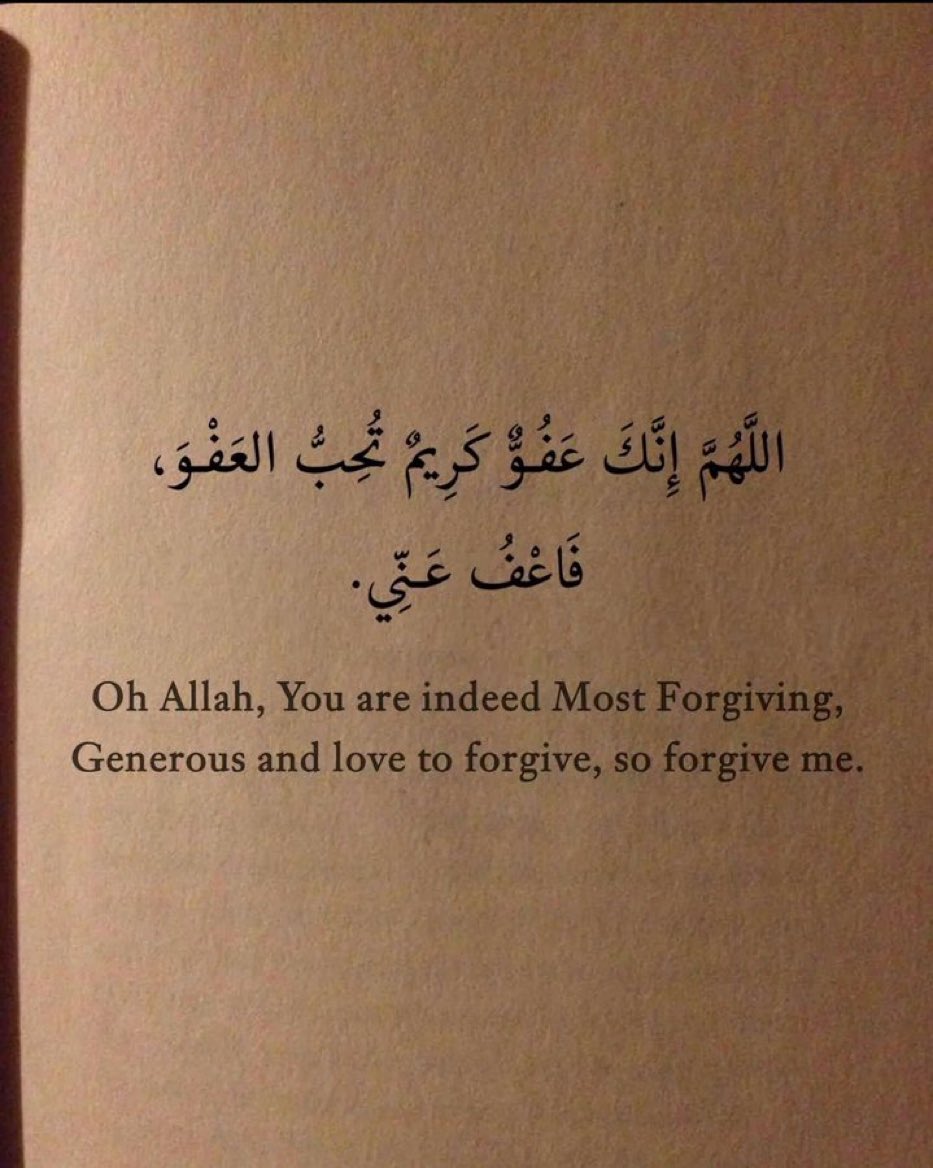 اللَّهُمَّ إِنَّكَ عَفُوٌّ كَرِيمٌ تُحِبُّ العَفْوَ،
فَاعْفُ عَنِّي.
Oh Allah, You are indeed Most Forgiving,
Generous and love to forgive, so forgive me.